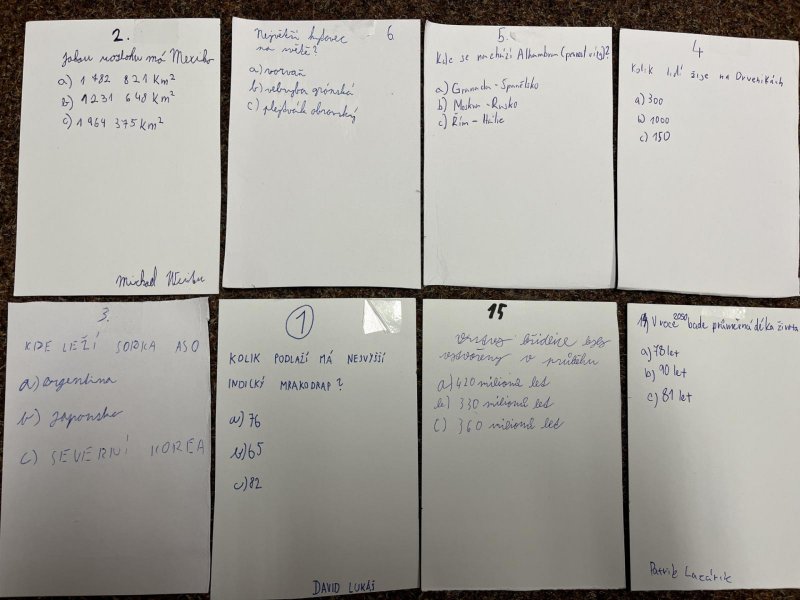 2.
Jakou rozlohu má Mexiko
a) 1 782 821 Km²
b) 1 231 648 Km²
c) 1 964 375 Km²
Michael
6.
Největší kytovec
na světě?
a) vorvaň
b) velryba grónská
c) plejtvák obrovský
5.
Kde se nachází Alhambra
a) Granada - Španělsko
b) Moskva - Rusko
c) Řím - Itálie
4
Kolik lidí žije na Drvenikách
a) 300
b) 1000
c) 150
3.
KDE LEŽÍ SOPKA ASO
a) argentina
b) Japonsko
c) SEVERNÍ KOREA
1
KOLIK PODLAŽÍ MÁ NEJVYŠŠÍ
INDICKÝ MRAKODRAP?
a) 76
b) 65
c) 82
DAVID LUKÁŠ
15
Vrstvy břidlice byly
vytvořeny v průběhu
a) 420 milionů let
b) 330 milionů let
c) 360 milionů let
V roce 2050 bude průměrná délka života
a) 78 let
b) 90 let
c) 81 let
Patrik Lazárik